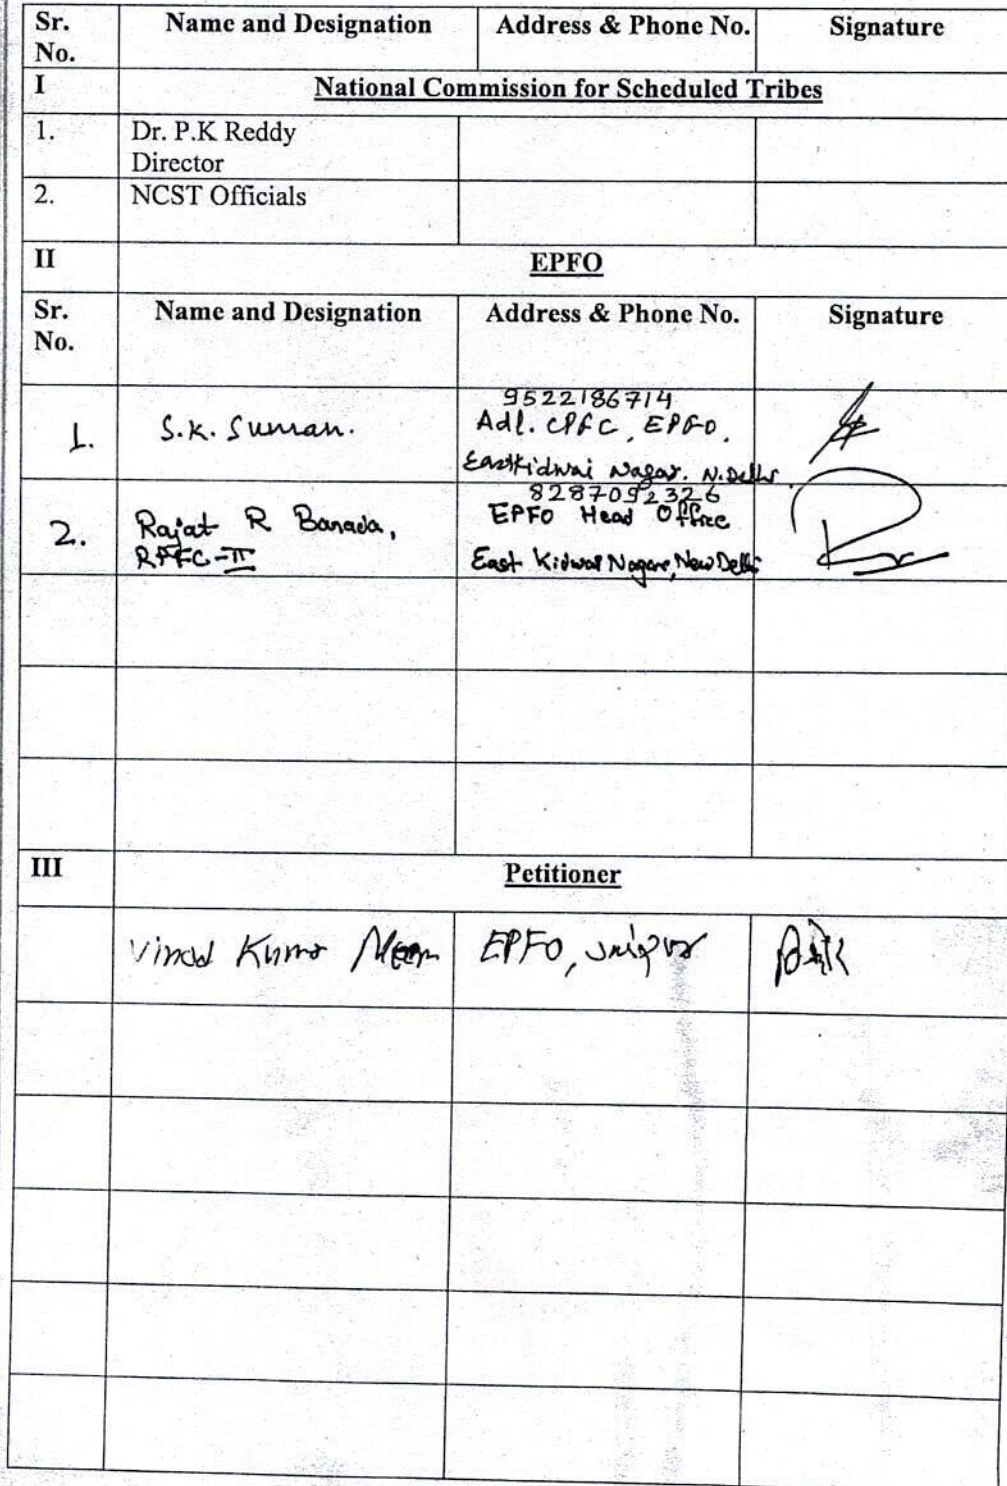 Sr. No. Name and Designation Address & Phone No. Signature
I National Commission for Scheduled Tribes
1. Dr. P.K Reddy
Director
2. NCST Officials
II EPFO
Sr. No. Name and Designation Address & Phone No. Signature
9522186714
1. S.K. Suman. Adl. CPFC, EPFO,
East Kidwai Nagar. N. Delhi.
8287092326
2. Rajat R Banada, EPFO Head Office
RPFC-II East Kidwai Nagar, New Delhi
III Petitioner
Vinod Kumar Meena EPFO, Jaipur